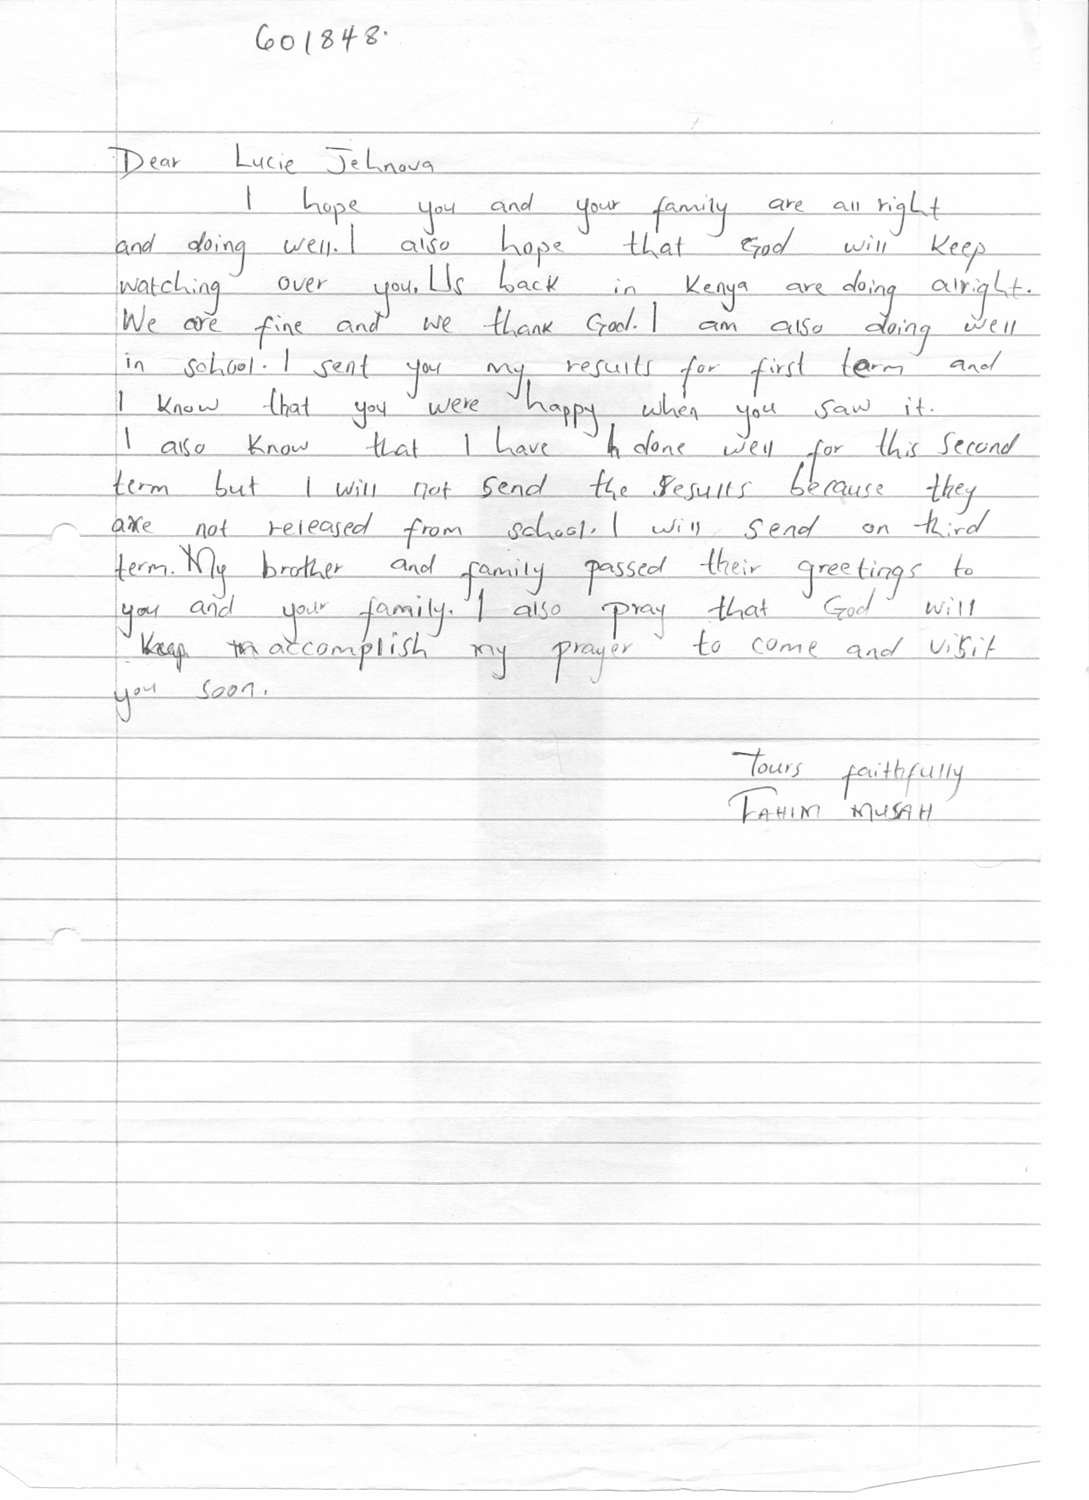 601848.
Dear Lucie Jehnova
I hope you and your family are all right
and doing well. I also hope that God will keep
watching over you. Us back in Kenya are doing alright.
We are fine and we thank God. I am also doing well
in school. I sent you my results for first term and
I know that you were happy when you saw it.
I also know that I have done well for this second
term but I will not send the results because they
are not released from school. I will send on third
term. My brother and family passed their greetings to
you and your family. I also pray that God will
accomplish my prayer to come and visit
you soon.
Yours faithfully
FAHIM MUSAH